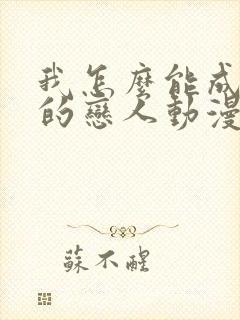 我怎麼能成
的戀人動漫
蘇不醒